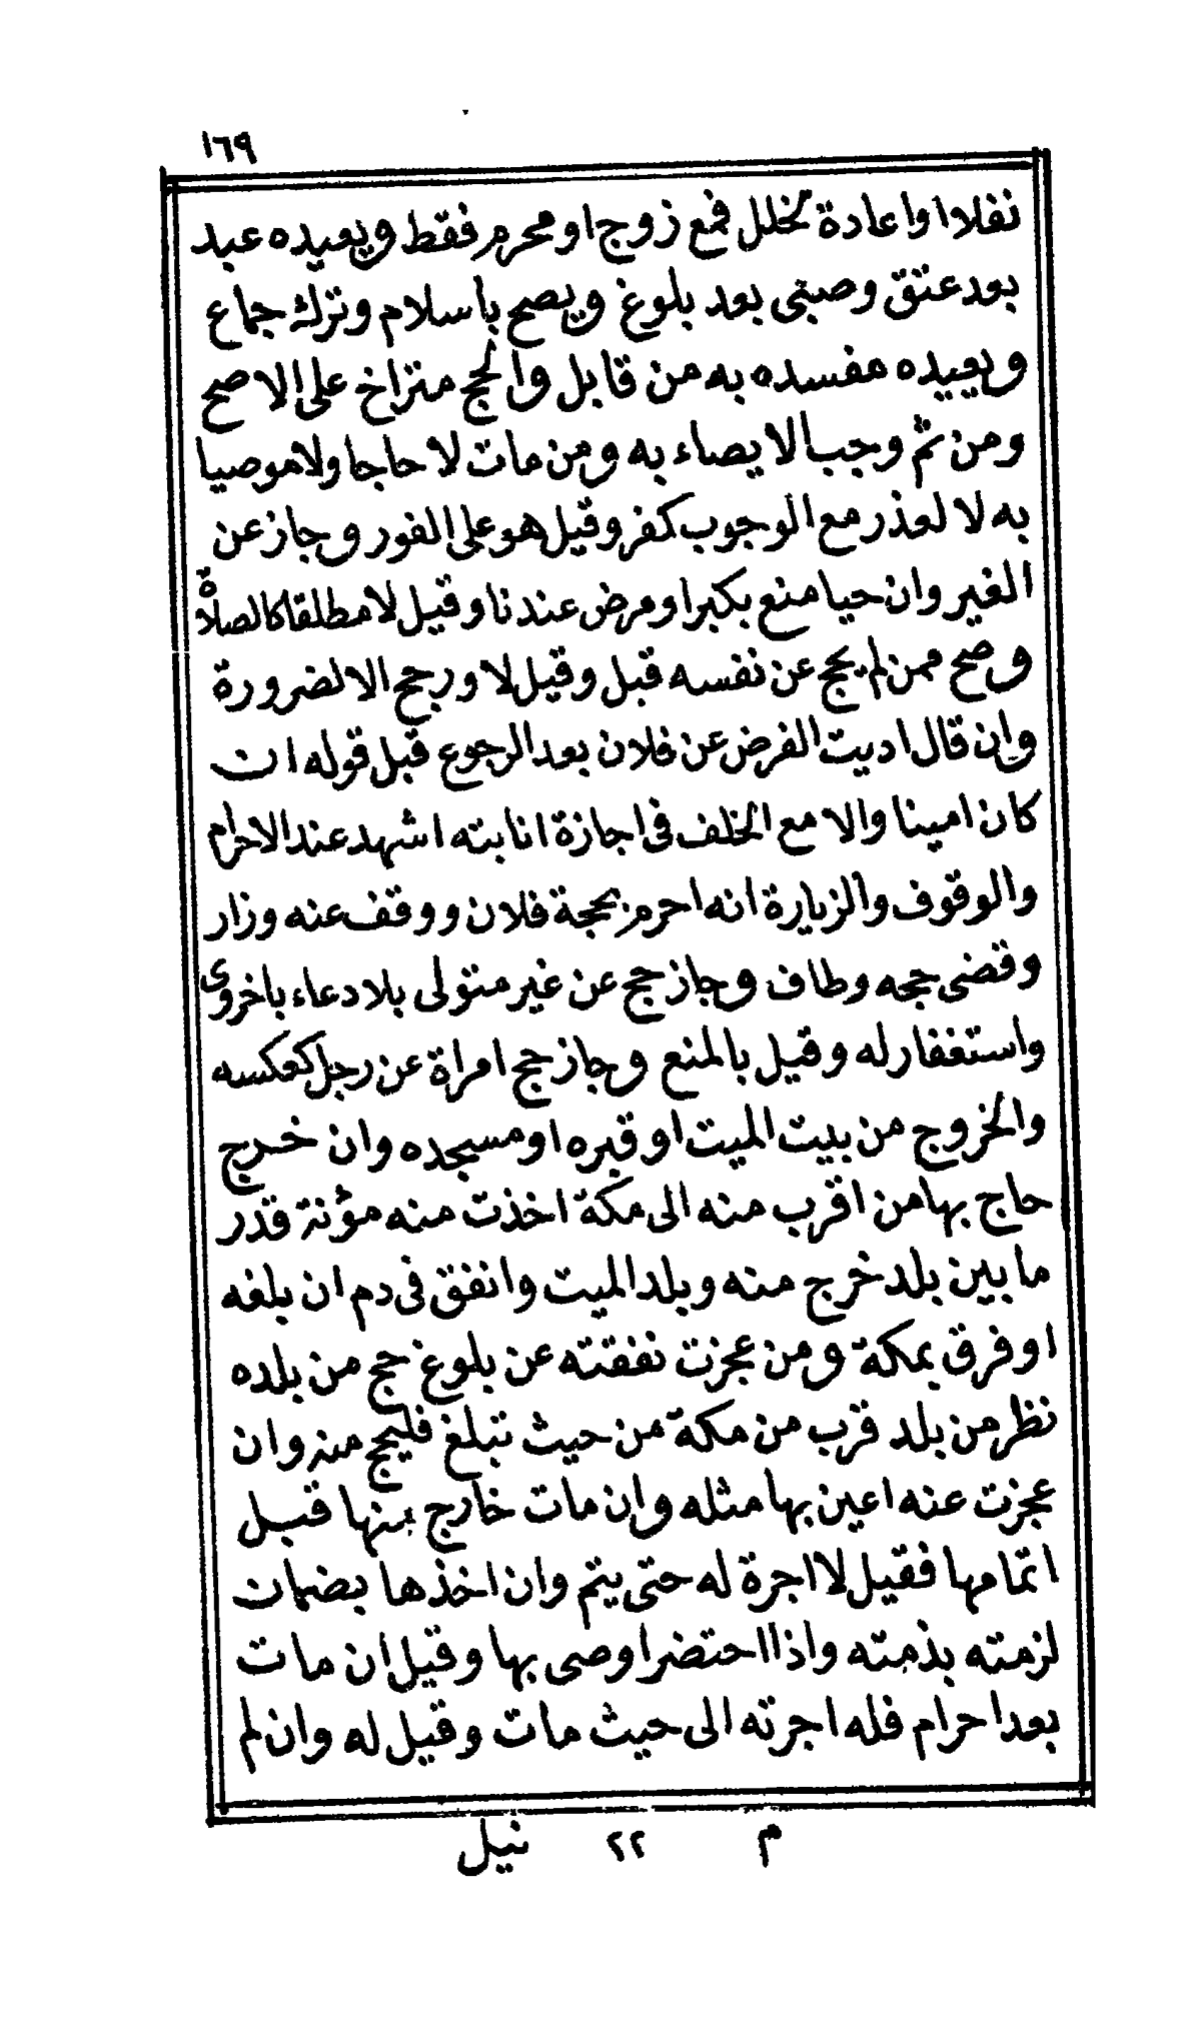 ١٦٩
نفلا او اعادة لخلل فمع زوج او محرم فقط ويعيده عبد
بعد عتق وصبى بعد بلوغ ويصح باسلام وترك جماع
ويعيده مفسده به من قابل والحج متراخ على الاصح
ومن ثم وجب الايصاء به ومن مات لا حاجا ولا موصيا
به لا لعذر مع الوجوب كفر وقيل هو على الفور وجاز عن
الغير وان حيا منع بكبر او مرض عندنا وقيل لا مطلقا كالصلاة
وصح ممن لم يحج عن نفسه قبل وقيل لا ورجح الا لضرورة
وان قال اديت الفرض عن فلان بعد الرجوع قبل قوله ان
كان امينا والا مع الخلف فى اجازة انابته اشهد عند الاحرام
والوقوف والزيارة انه احرم بحجة فلان ووقف عنه وزار
وقضى حجه وطاف وجاز حج عن غير متولى بلا دعاء باخروى
واستغفار له وقيل بالمنع وجاز حج امراة عن رجل كعكسه
والخروج من بيت الميت او قبره او مسجده وان خرج
حاج بها من اقرب منه الى مكة اخذت منه مؤنة قدر
ما بين بلد خرج منه وبلد الميت وانفق فى دم ان بلغه
او فرق بمكة ومن عجزت نفقته عن بلوغ حج من بلده
نظر من بلد قرب من مكة من حيث تبلغ فليحج منه وان
عجزت عنه اعين بها مثله وان مات خارج بها قبل
اتمامها فقيل لا اجرة له حتى يتم وان اخذها بضمان
لزمته بذمته واذا احتضر اوصى بها وقيل ان مات
بعد احرام فله اجرته الى حيث مات وقيل له وان لم
م ٢٢ نيل